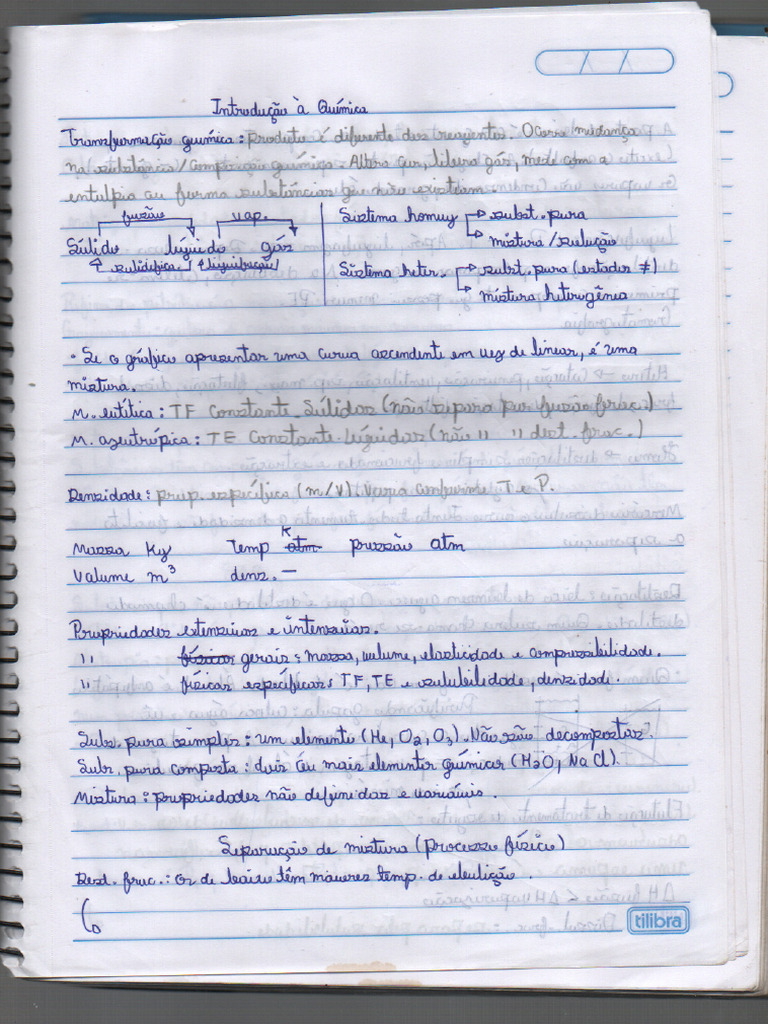 Introdução à Química
Transformação química: produto é diferente dos reagentes. Ocorre mudança
na substância/composição química. Altera cor, libera gás, mede com a
entalpia ou forma substâncias que não existiam.
fusão vap.
Sólido líquido gás
solidifica liquefação
Sistema homog subst. pura
mistura/solução
Sistema heter. subst. pura (estados ≠)
mistura heterogênea
• Se o gráfico apresentar uma curva ascendente em vez de linear, é uma
mistura.
M. eutética: TF Constante. Sólidos (não separa por fusão frac.)
M. azeotrópica: TE Constante. Líquidos (não " " dest. frac.)
Densidade: prop. específica (m/v). Varia conforme T e P.
Massa Kg Temp atm K pressão atm
Volume m³ dens. —
Propriedades extensivas e intensivas.
" físicas gerais: massa, volume, elasticidade e compressibilidade.
" físicas específicas: TF, TE e solubilidade, densidade.
Subs. pura simples: um elemento (He, O2, O3). Não são decompostas.
Subs. pura composta: dois ou mais elementos químicos (H2O, NaCl).
Mistura: propriedades não definidas e variáveis.
Separação de mistura (processo físico)
Dest. frac.: os de baixo têm maiores temp. de ebulição.
tilibra